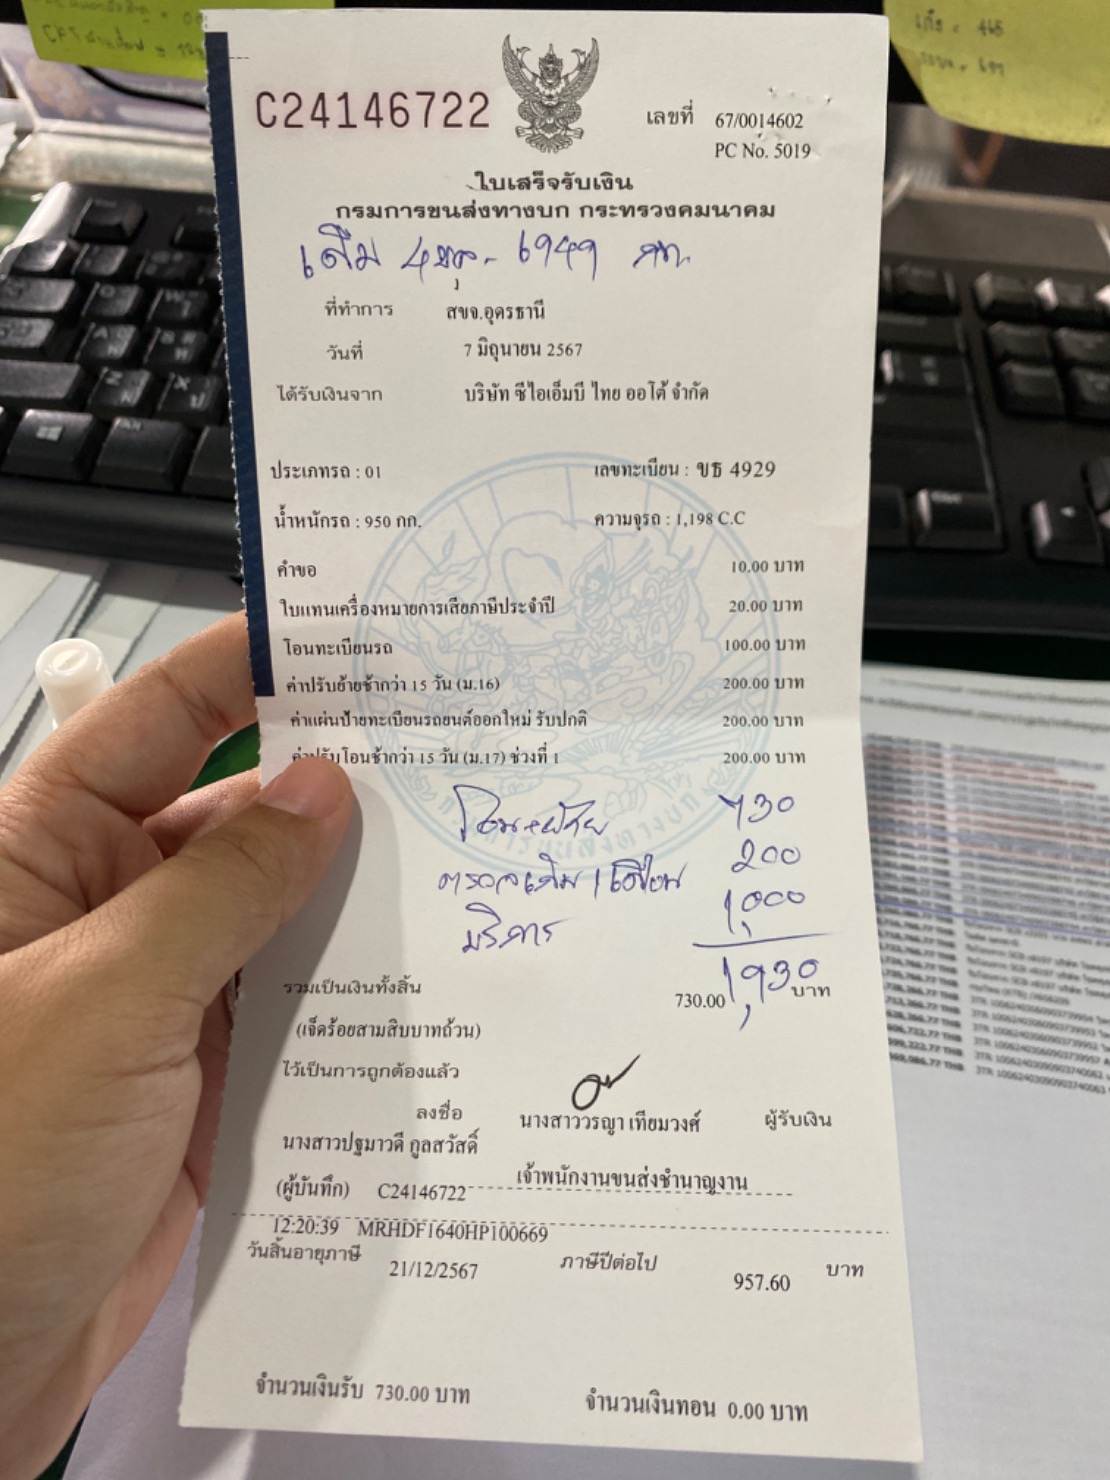 C24146722
เลขที่ 67/0014602
PC No. 5019
ใบเสร็จรับเงิน
กรมการขนส่งทางบก กระทรวงคมนาคม
เดิม 4ขฎ - 6949 กท.
ที่ทำการ สขจ.อุดรธานี
วันที่ 7 มิถุนายน 2567
ได้รับเงินจาก บริษัท ซีไอเอ็มบี ไทย ออโต้ จำกัด
ประเภทรถ : 01 เลขทะเบียน : ขธ 4929
น้ำหนักรถ : 950 กก. ความจุรถ : 1,198 C.C
คำขอ 10.00 บาท
ใบแทนเครื่องหมายการเสียภาษีประจำปี 20.00 บาท
โอนทะเบียนรถ 100.00 บาท
ค่าปรับย้ายช้ากว่า 15 วัน (ม.16) 200.00 บาท
ค่าแผ่นป้ายทะเบียนรถยนต์ออกใหม่ รับปกติ 200.00 บาท
ค่าปรับโอนช้ากว่า 15 วัน (ม.17) ช่วงที่ 1 200.00 บาท
730
200
บริการ 1,000
1,930
รวมเป็นเงินทั้งสิ้น 730.00 บาท
(เจ็ดร้อยสามสิบบาทถ้วน)
ไว้เป็นการถูกต้องแล้ว
ลงชื่อ นางสาววรญา เทียมวงศ์ ผู้รับเงิน
นางสาวปฐมาวดี กูลสวัสดิ์
เจ้าพนักงานขนส่งชำนาญงาน
(ผู้บันทึก) C24146722
12:20:39 MRHDF1640HP100669
วันสิ้นอายุภาษี 21/12/2567 ภาษีปีต่อไป 957.60 บาท
จำนวนเงินรับ 730.00 บาท จำนวนเงินทอน 0.00 บาท